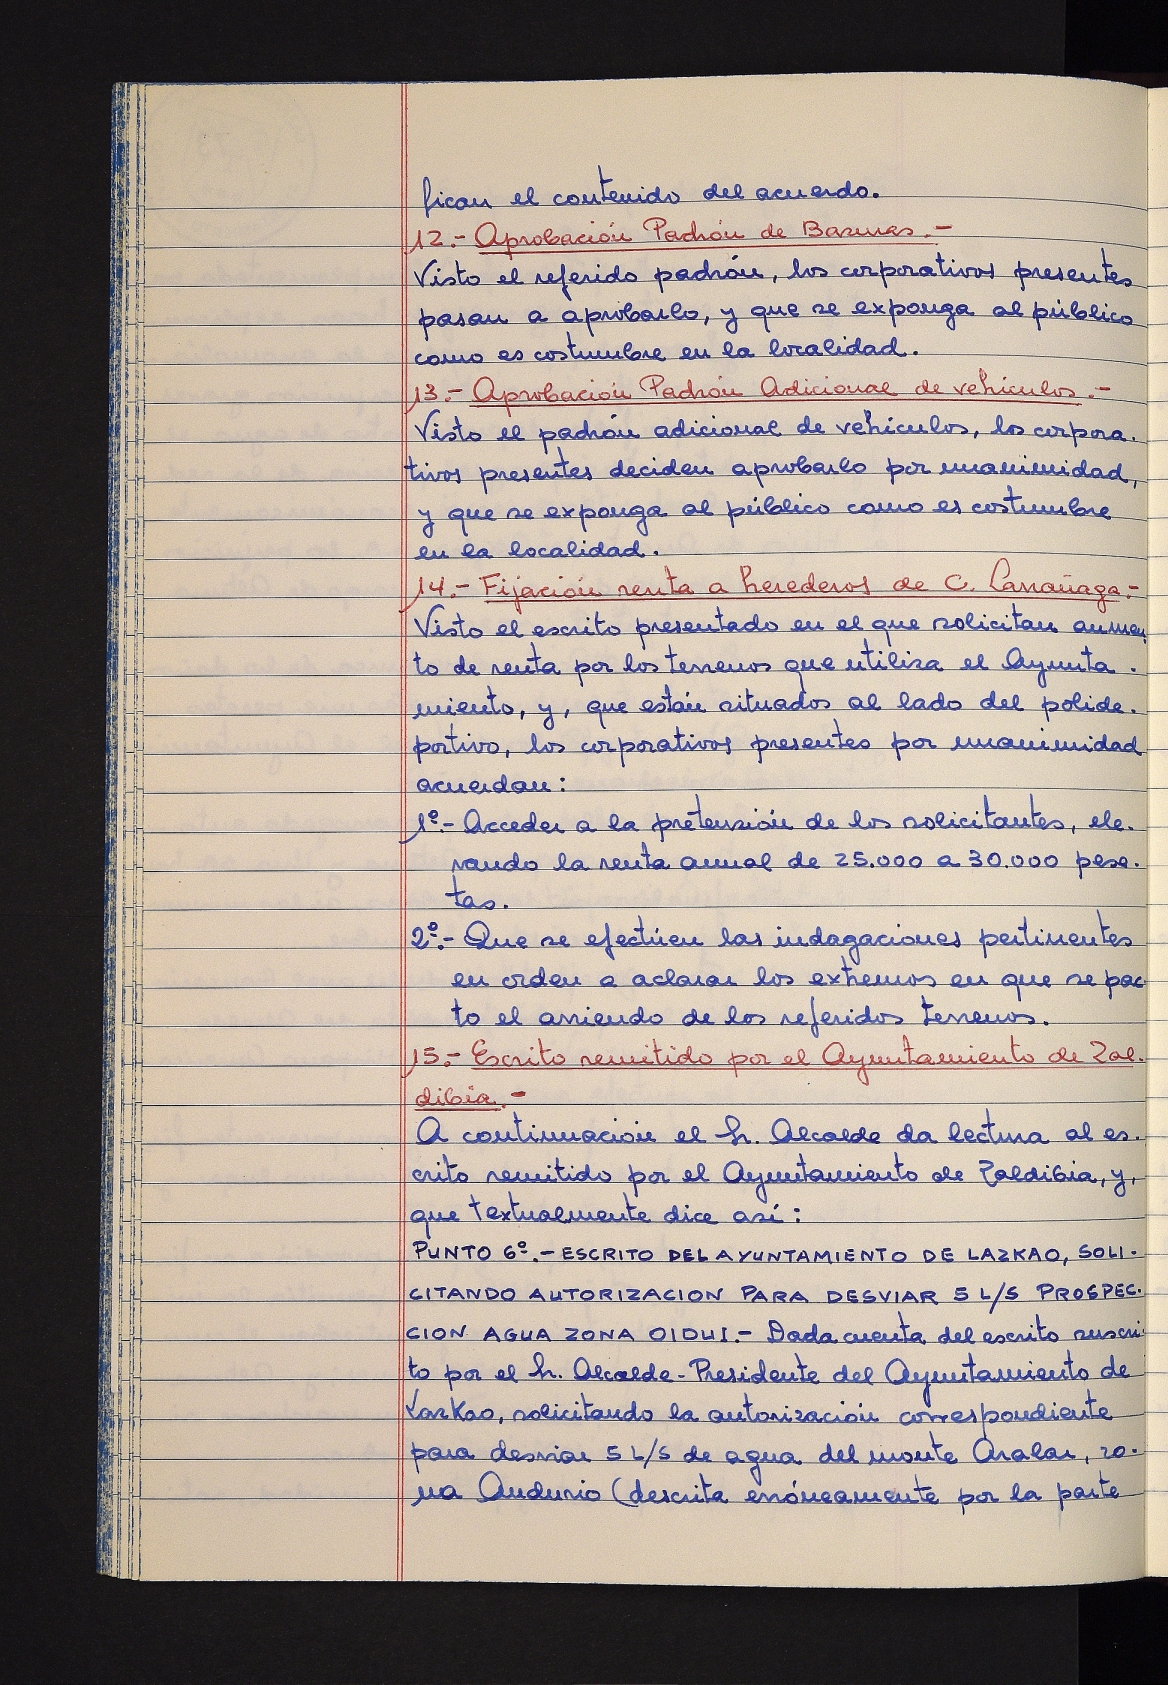 fican el contenido del acuerdo.
12.- Aprobación Padrón de Basuras.-
Visto el referido padrón, los corporativos presentes
pasan a aprobarlo, y que se exponga al público
como es costumbre en la localidad.
13.- Aprobación Padrón Adicional de vehículos.-
Visto el padrón adicional de vehículos, los corpora-
tivos presentes deciden aprobarlo por unanimidad,
y que se exponga al público como es costumbre
en la localidad.
14.- Fijación renta a herederos de C. Larrañaga.-
Visto el escrito presentado en el que solicitan aumen
to de renta por los terrenos que utiliza el Ayunta-
miento, y, que están situados al lado del polide-
portivo, los corporativos presentes por unanimidad
acuerdan:
1º.- Acceder a la pretensión de los solicitantes, ele-
vando la renta anual de 25.000 a 30.000 pese-
tas.
2º.- Que se efectúen las indagaciones pertinentes
en orden a aclarar los extremos en que se pac-
to el arriendo de los referidos terrenos.
15.- Escrito remitido por el Ayuntamiento de Zal-
dibia.-
A continuación el Sr. Alcalde da lectura al es-
crito remitido por el Ayuntamiento de Zaldibia, y,
que textualmente dice así:
PUNTO 6º.- ESCRITO DEL AYUNTAMIENTO DE LAZKAO, SOLI-
CITANDO AUTORIZACION PARA DESVIAR 5 L/S PROSPEC-
CION AGUA ZONA OIDUI.- Dada cuenta del escrito suscri-
to por el Sr. Alcalde-Presidente del Ayuntamiento de
Lazkao, solicitando la autorización correspondiente
para desviar 5 L/S de agua del monte Aralar, zo-
na Andurio (descrita erróneamente por la parte